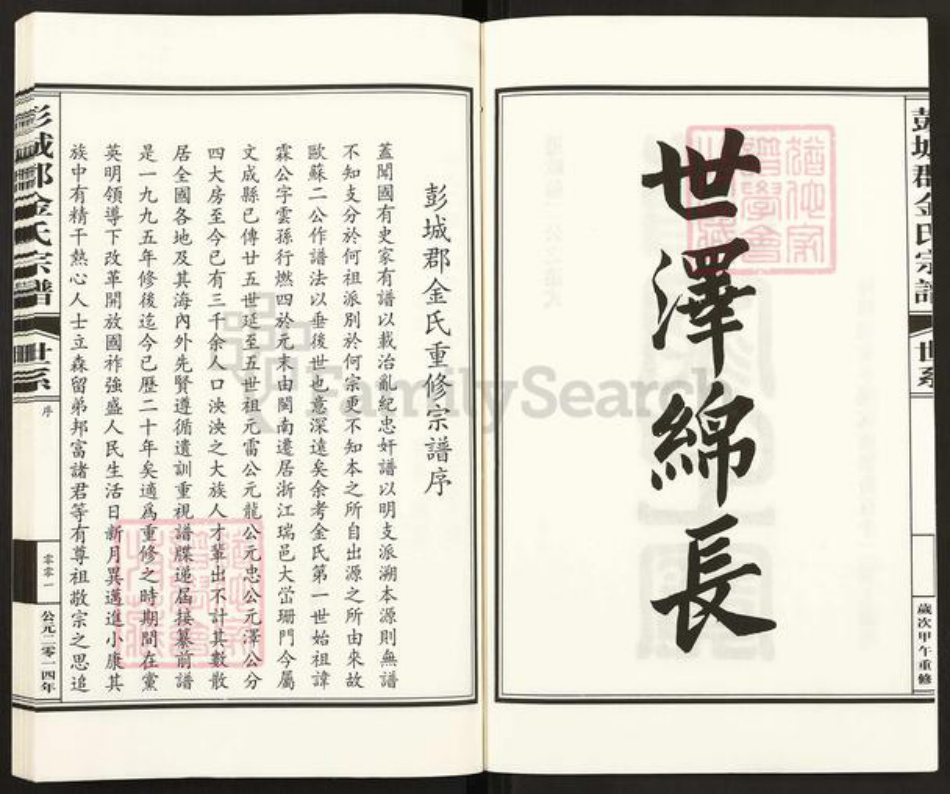 彭城郡金氏宗譜
世系
歲次甲午重修
世澤綿長
彭城郡金氏重修宗譜序
蓋聞國有史家有譜以載治亂紀忠奸譜以明支派溯本源則無譜
不知支分於何祖派別於何宗更不知本之所自出源之所由來故
歐蘇二公作譜法以垂後世也意深遠矣余考金氏第一世始祖諱
霖公字雲孫行燃四於元末由閩南遷居浙江瑞邑大峃珊門今屬
文成縣已傳廿五世延至五世祖元雷公元龍公元忠公元澤公分
四大房至今已有三千余人口泱泱之大族人才輩出不計其數散
居全國各地及其海內外先賢遵循遺訓重視譜牒遞屆接纂前譜
是一九九五年修後迄今已歷二十年矣適爲重修之時期間在黨
英明領導下改革開放國祚強盛人民生活日新月異邁進小康其
族中有精干熱心人士立森留弟邦富諸君等有尊祖敬宗之思追
彭城郡金氏宗譜
世系
序
零零一
公元二零一四年
FamilySearch